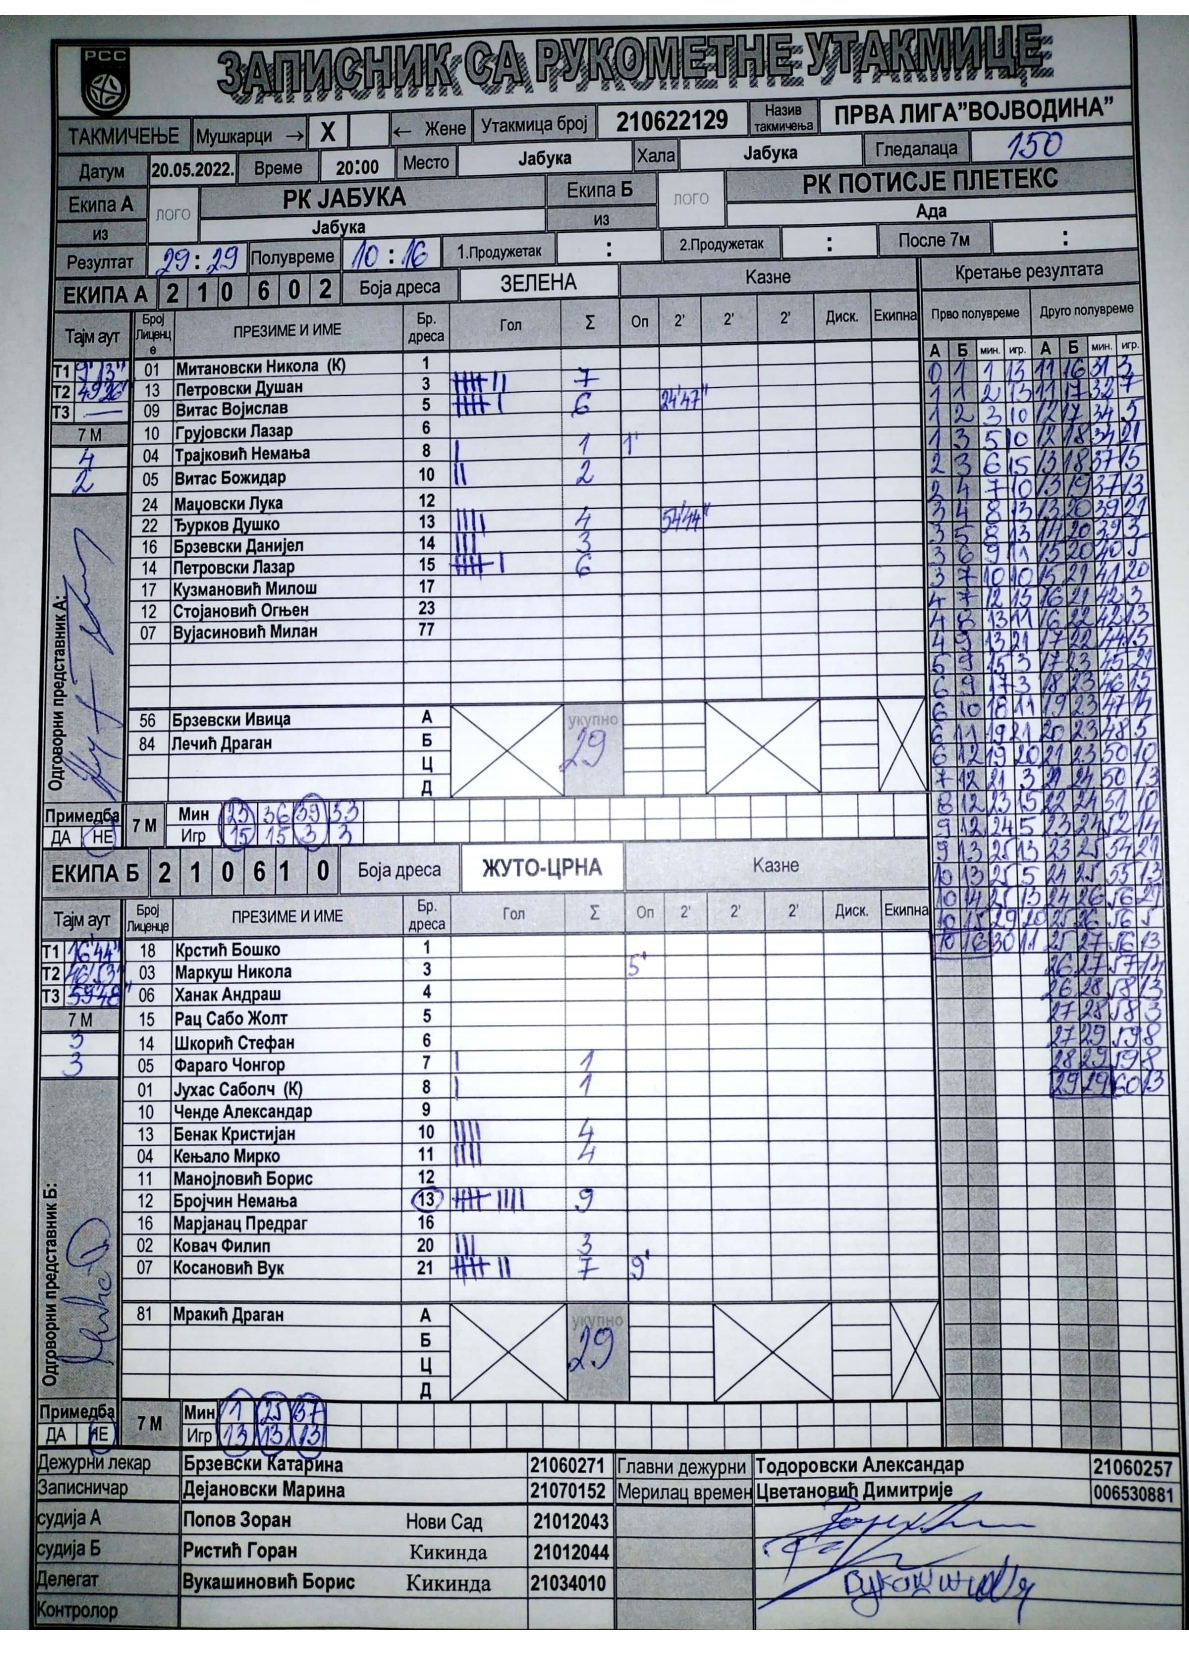 РСС
ЗАПИСНИК СА РУКОМЕТНЕ УТАКМИЦЕ
ТАКМИЧЕЊЕ Мушкарци → X ← Жене Утакмица број 210622129 Назив такмичења ПРВА ЛИГА"ВОЈВОДИНА"
Датум 20.05.2022. Време 20:00 Место Јабука Хала Јабука Гледалаца 150
Екипа А лого РК ЈАБУКА Екипа Б лого РК ПОТИСЈЕ ПЛЕТЕКС
из Јабука из Ада
Резултат 29:29 Полувреме 10:16 1.Продужетак : 2.Продужетак : После 7м :
ЕКИПА А 2 1 0 6 0 2 Боја дреса ЗЕЛЕНА Казне Кретање резултата
Тајм аут Број Лиценце ПРЕЗИМЕ И ИМЕ Бр. дреса Гол Σ Оп 2' 2' 2' Диск. Екипна Прво полувреме Друго полувреме
А Б мин. игр. А Б мин. игр.
Т1 9'13" 01 Митановски Никола (К) 1
Т2 49'26" 13 Петровски Душан 3 7
Т3 — 09 Витас Војислав 5 6 24'47"
7 М 10 Грујовски Лазар 6
4 04 Трајковић Немања 8 1 1'
2 05 Витас Божидар 10 2
24 Мацовски Лука 12
22 Ђурков Душко 13 4 54'44"
16 Брзевски Данијел 14 3
14 Петровски Лазар 15 6
17 Кузмановић Милош 17
12 Стојановић Огњен 23
07 Вујасиновић Милан 77
Одговорни представник А:
56 Брзевски Ивица А укупно
84 Лечић Драган Б 29
Ц
Д
Примедба 7 М Мин 23 36 39 53
ДА НЕ Игр 15 15 3 3
0 1 1 13 11 16 31 3
1 1 2 13 11 17 32 7
1 2 3 10 12 17 34 5
1 3 5 10 12 18 34 21
2 3 6 15 13 18 37 15
2 4 7 10 13 19 37 13
3 4 8 13 13 20 39 21
3 5 8 13 14 20 39 3
3 6 9 11 15 20 40 5
3 7 10 10 15 21 41 20
4 7 12 15 16 21 42 3
4 8 13 11 16 22 42 13
4 9 13 21 17 22 44 15
5 9 15 3 17 23 45 21
6 9 17 3 18 23 46 15
6 10 18 11 19 23 47 14
6 11 19 21 20 23 48 5
6 12 19 20 21 23 50 10
7 12 21 3 21 24 50 13
8 12 23 15 22 24 51 10
9 12 24 5 23 24 52 14
9 13 25 13 23 25 54 21
10 13 25 5 24 25 55 13
10 14 25 13 24 26 56 21
10 15 29 20 25 26 56 5
10 16 30 11 25 27 56 13
26 27 57 14
26 28 58 13
27 28 58 3
27 29 59 8
28 29 59 8
29 29 60 13
ЕКИПА Б 2 1 0 6 1 0 Боја дреса ЖУТО-ЦРНА Казне
Тајм аут Број Лиценце ПРЕЗИМЕ И ИМЕ Бр. дреса Гол Σ Оп 2' 2' 2' Диск. Екипна
Т1 16'44" 18 Крстић Бошко 1
Т2 46'53" 03 Маркуш Никола 3 5'
Т3 59'48" 06 Ханак Андраш 4
7 М 15 Рац Сабо Жолт 5
3 14 Шкорић Стефан 6
3 05 Фараго Чонгор 7 1
01 Јухас Саболч (К) 8 1
10 Ченде Александар 9
13 Бенак Кристијан 10 4
04 Кењало Мирко 11 4
11 Манојловић Борис 12
12 Бројчин Немања 13 9
16 Марјанац Предраг 16
02 Ковач Филип 20 3
07 Косановић Вук 21 7 9'
Одговорни представник Б:
81 Мракић Драган А укупно
Б 29
Ц
Д
Примедба 7 М Мин 1 25 37
ДА НЕ Игр 13 13 13
Дежурни лекар Брзевски Катарина 21060271 Главни дежурни Тодоровски Александар 21060257
Записничар Дејановски Марина 21070152 Мерилац времен Цветановић Димитрије 006530881
судија А Попов Зоран Нови Сад 21012043
судија Б Ристић Горан Кикинда 21012044
Делегат Вукашиновић Борис Кикинда 21034010
Контролор